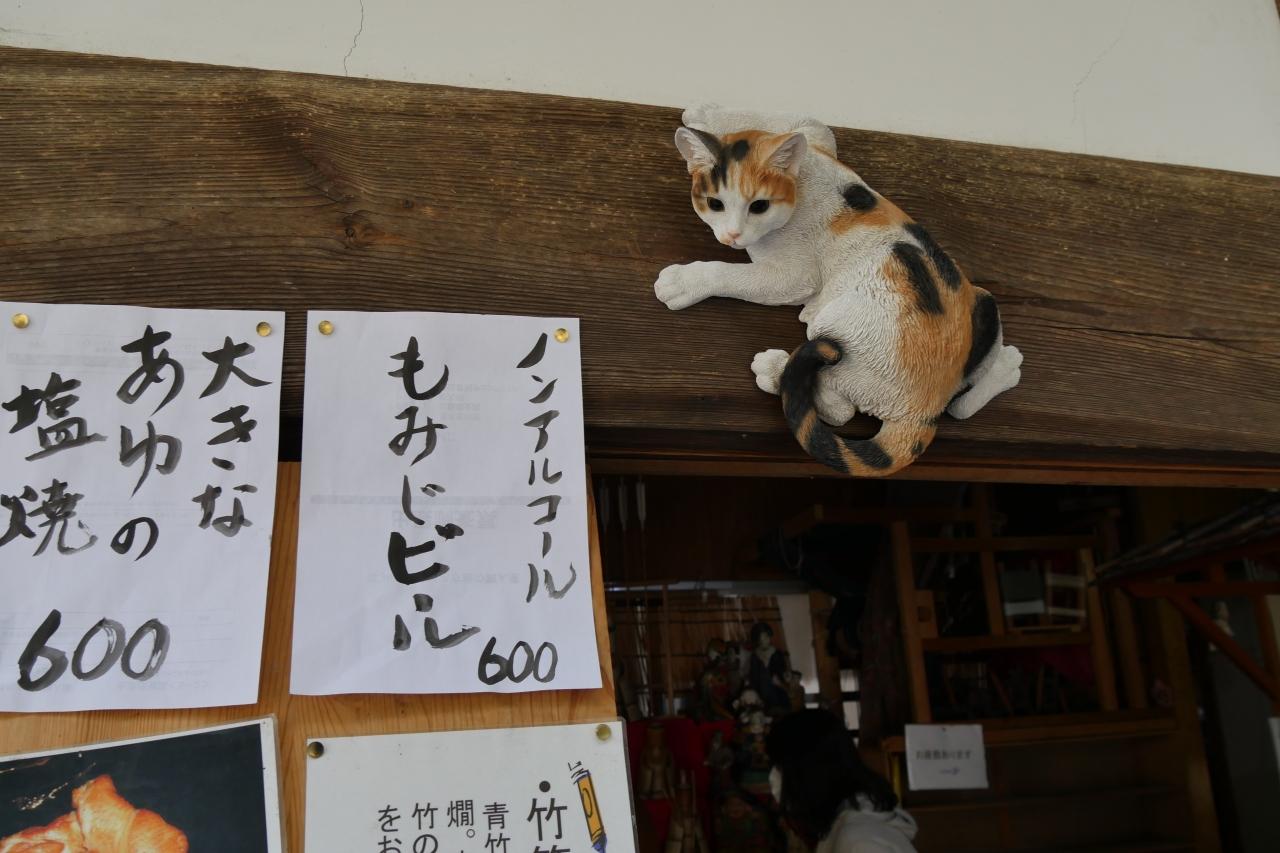 大きな
あゆの
塩焼
600
ノンアルコール
もみじビール
600
・竹
青竹
燗。
竹の
をお
お座敷あります